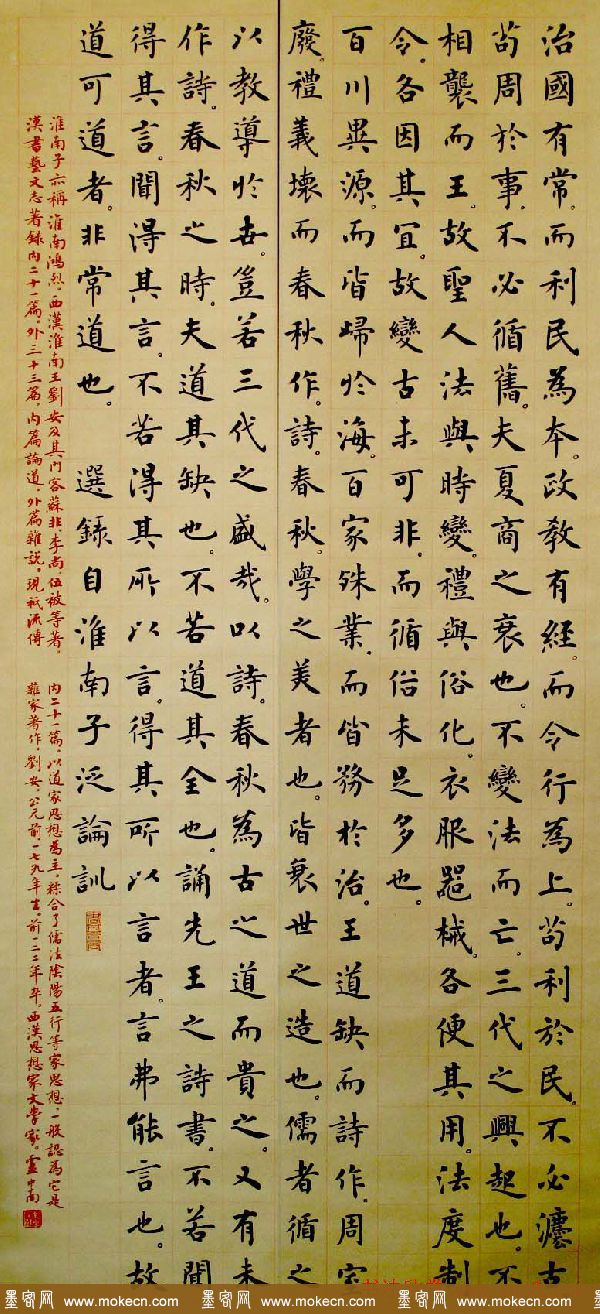 治國有常。而利民為本。政教有經。而令行為上。苟利於民。不必灋古。
苟周於事。不必循舊。夫夏商之衰也。不變法而亡。三代之興起也。不
相襲而王。故聖人法與時變。禮與俗化。衣服器械。各便其用。法度制
令。各因其宜。故變古未可非。而循俗未足多也。
百川異源。而皆歸於海。百家殊業。而皆務於治。王道缺而詩作。周室
廢。禮義壞而春秋作。詩。春秋。學之美者也。皆衰世之造也。儒者循之
以教導於世。豈若三代之盛哉。以詩。春秋為古之道而貴之。又有未
作詩。春秋之時。夫道其缺也。不若道其全也。誦先王之詩書。不若聞
得其言。聞得其言。不若得其所以言。得其所以言者。言弗能言也。故
道可道者。非常道也。 選錄自淮南子泛論訓
淮南子亦稱淮南鴻烈。西漢淮南王劉安及其門客蘇非、李尚、伍被等著。
漢書藝文志著錄內二十一篇。外三十三篇。內篇論道。外篇雜說。現祇流傳
內二十一篇。以道家思想為主。綜合了儒法陰陽五行等家思想。一般認為它是
雜家著作。劉安。公元前一七九年生。前一二二年卒。西漢思想家文學家。盧中南
墨客网 www.mokecn.com 墨客网 www.mokecn.com 墨客网 www.mokecn.com